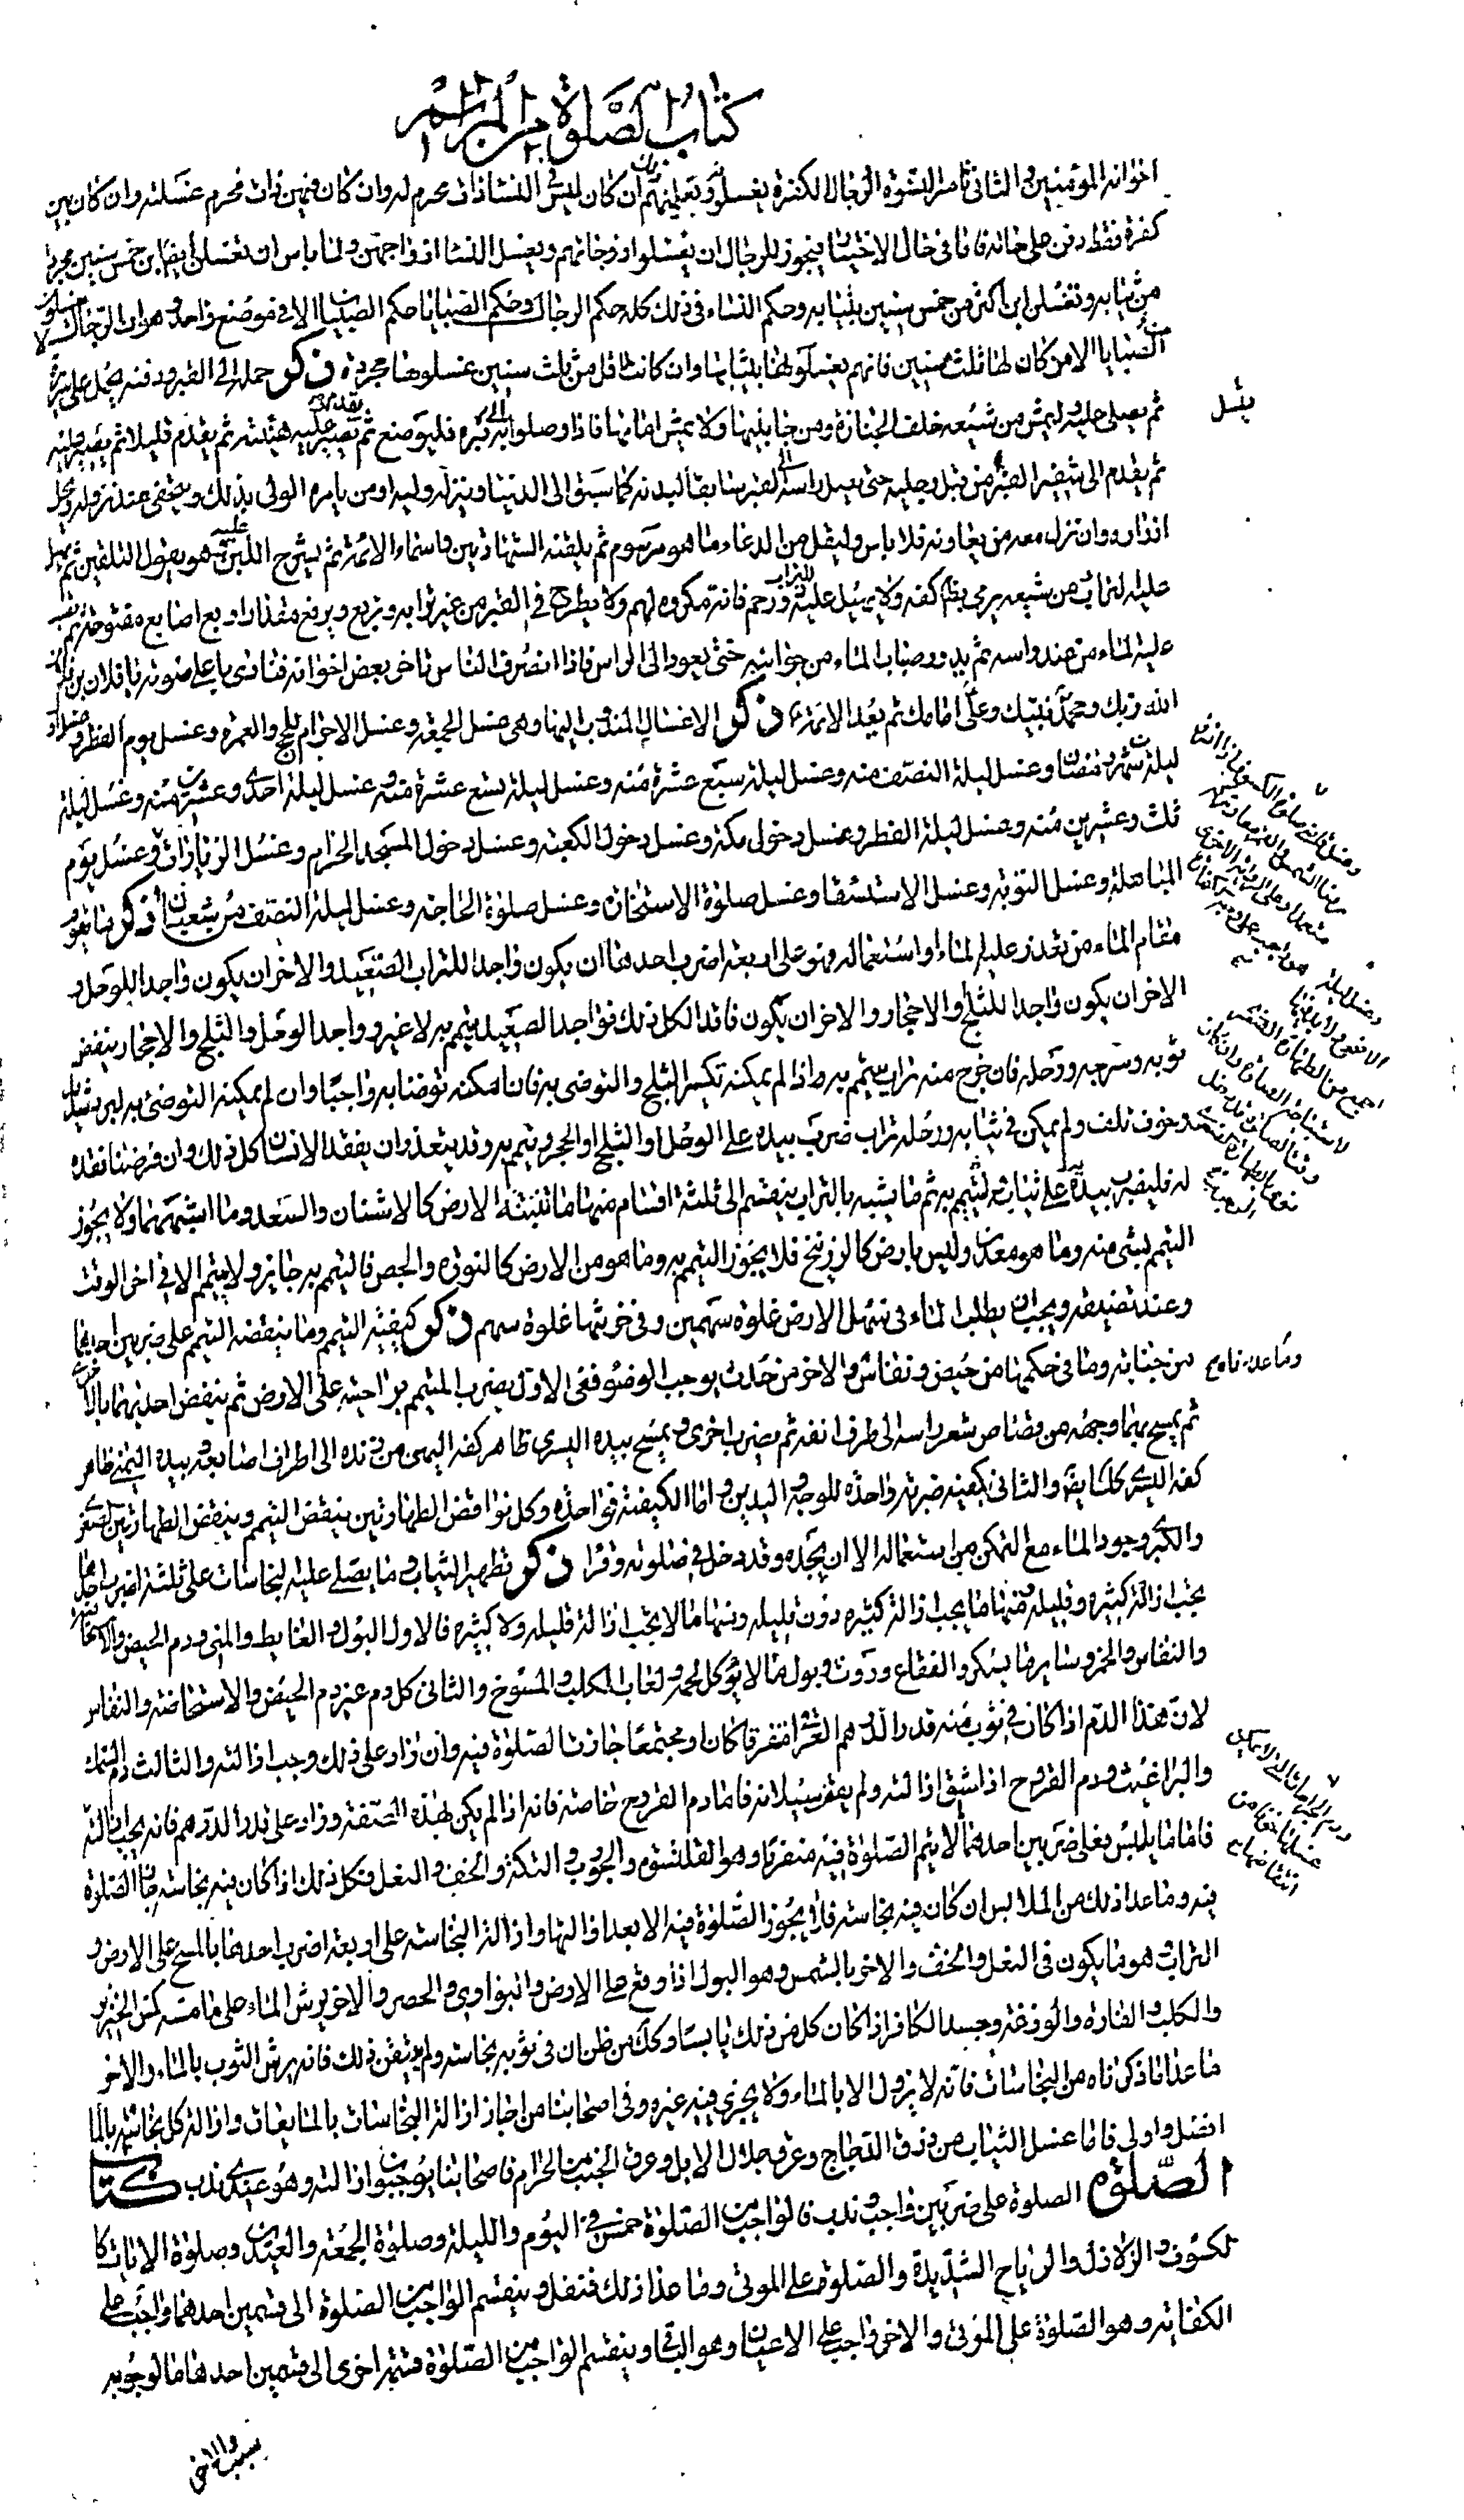 كتاب الصلوة من المراسم
اخوانه المؤمنين وفي الثاني تأمر النسوة الرجال الكفرة بغسله وتعليمهم ان كان ليس في النساء ذات محرم له وان كان فيهن ذات محرم غسلته وان كان بين
كفرة فقط دفن على حاله فاما في حال الاختيار فيجوز للرجال ان يغسلوا ازواجهم ويغسل النساء ازواجهن ولا باس ان تغسلن ايضا ابن خمس سنين مجردا
من ثيابه وتغسلن ابن اكثر من خمس سنين بثيابه وحكم النساء في ذلك كله حكم الرجال وحكم الصبايا حكم الصبيان الا في موضع واحد وهو ان الرجال لا يغسلون
من الصبايا الا من كان لها ثلث سنين فانهم يغسلونها بثيابها وان كانت لاقل من ثلث سنين غسلوها مجردة ذكر حمله الى القبر ودفنه يحمل على سريره
ثم يصلى عليه وليمش من شيعه خلف الجنازة ومن جانبيها ولا يمش امامها فاذا وصلوا به الى قبره فليوضع ثم يصبر عليه هنيئة ثم يقدم قليلا ثم يصبر عليه
ثم يقدم الى شفير القبر من قبل رجليه حتى يصل راسه الى القبر سابقا لبدنه كما سبق الى الدنيا وينزله وليه او من يامره الولي بذلك ويتحفى عند نزوله ويحل
ازراره وان نزل معه من يعاونه فلا باس وليقل من الدعاء ما هو مرسوم ثم يلقنه الشهادتين واسماء الائمة ثم يشرج عليه اللبن وهو يقول التلقين ثم يهيل
عليه التراب من شيعه يرمي بظهر كفه ولا يهيل عليه التراب ذو رحم فانه مكروه لهم ولا يطرح في القبر من غير ترابه ويربع ويرفع مقدار اربع اصابع مفتوحة ثم يصب
عليه الماء من عند راسه ثم يدور صباب الماء من جوانبه حتى يعود الى الراس فاذا انصرف الناس تاخر بعض اخوانه فنادى باعلى صوته يا فلان بن فلان
الله ربك ومحمد نبيك وعلي امامك ثم يعد الائمة ذكر الاغسال المندوب اليها وهي غسل الجمعة وغسل الاحرام للحج والعمرة وغسل يوم الفطر وغسل اول
ليلة شهر رمضان وغسل ليلة النصف منه وغسل ليلة سبع عشرة منه وغسل ليلة تسع عشرة منه وغسل ليلة احدى وعشرين منه وغسل ليلة
ثلث وعشرين منه وغسل ليلة الفطر وغسل دخول مكة وغسل دخول الكعبة وغسل دخول المسجد الحرام وغسل الزيارات وغسل يوم
المباهلة وغسل التوبة وغسل الاستسقاء وغسل صلوة الاستخارة وغسل صلوة الحاجة وغسل ليلة النصف من شعبان ذكر ما يقوم
مقام الماء من تعذر عليه الماء او استعماله فهو على اربعة اضرب احدها ان يكون واجدا للتراب الصعيد والاخر ان يكون واجدا للوحل و
الاخر ان يكون واجدا للثلج والاحجار والاخر ان يكون فاقدا لكل ذلك فواجد الصعيد يتيمم به لا غير وواجد الوحل والثلج والاحجار ينفض
ثوبه وسرجه ورحله فان خرج منه تراب يتيمم به اذا لم يمكنه تكسير الثلج والتوضى به فان امكنه توضا به واجبا وان لم يمكنه التوضئ به لبرد شديد
وخوف تلف ولم يكن في ثيابه ورحله تراب ضرب بيده على الوحل او الثلج او الحجر وتيمم به وقد يتعذر ان يفقد الانسان كل ذلك وان فرضنا فقده
له فليضرب بيده على ثيابه ليتيمم به ثم ما يشبه بالتراب ينقسم الى ثلثة اقسام منها ما تنبته الارض كالاشنان والسعد وما اشبههما ولا يجوز
التيمم بشئ منه وما هو معدن وليس بارض كالزرنيخ فلا يجوز التيمم به وما هو من الارض كالنورة والجص فالتيمم به جائز ولا يتيمم الا في اخر الوقت
وعند تضيقه ويجب ان يطلب الماء في سهل الارض غلوة سهمين وفي حزنها غلوة سهم ذكر كيفية التيمم وما ينقضه التيمم على ضربين احدهما
من جنابة وما في حكمها من حيض ونفاس والاخر من حدث يوجب الوضوء ففي الاول يضرب المتيمم براحتيه على الارض ثم ينفض احديهما بالاخرى
ثم يمسح بهما وجهه من قصاص شعر راسه الى طرف انفه ثم يضرب اخرى ويمسح بيده اليسرى ظاهر كفه اليمنى من زنده الى اطراف اصابعه وبيده اليمنى ظاهر
كفه اليسرى كما سبق والثاني يكفيه ضربة واحدة للوجه واليدين واما الكيفية فواحدة وكل نواقض الطهارتين ينقض التيمم وينقض الطهارتين الصغرى
والكبرى وجود الماء مع التمكن من استعماله الا ان يجده وقد دخل في صلوته وقرا ذكر تطهير الثياب وما يصلى عليه النجاسات على ثلثة اضرب احدها
يجب ازالة كثيره وقليله ومنها ما يجب ازالة كثيره دون قليله ومنها ما لا يجب ازالة قليله ولا كثيره فالاول البول والغايط والمني ودم الحيض والاستحاضة
والنفاس والخمر وساير ما يسكر والفقاع وروث وبول ما لا يؤكل لحمه ولعاب الكلب والمسوخ والثاني كل دم غير دم الحيض والاستحاضة والنفاس
لان هذا الدم اذا كان في ثوب منه قدر الدرهم متفرقا كان او مجتمعا جازت الصلوة فيه وان زاد على ذلك وجب ازالته والثالث دم السمك
والبراغيث ودم القروح اذا شق ازالته ولم يقف سيلانه فاما دم القروح خاصة فانه اذا لم يكن بهذه الصفة وزاد على قدر الدرهم فانه يجب ازالته
فاما ما يلبس فعلى ضربين احدهما لا يتم الصلوة فيه منفردا وهو القلنسوة والجورب والتكة والخف والنعل فكل ذلك اذا كان فيه نجاسة جاز الصلوة
فيه وما عدا ذلك من الملابس ان كان فيه نجاسة فلا يجوز الصلوة فيه الا بعد ازالتها وازالة النجاسة على اربعة اضرب احدها بالمسح على الارض و
التراب وهو ما يكون في النعل والخف والاخر بالشمس وهو البول اذا وقع على الارض والبواري والحصر والاخر برش الماء على ما مسه كمس الخنزير
والكلب والفارة والوزغة وجسد الكافر اذا كان كل من ذلك يابسا وكل من ظن ان في ثوبه نجاسة ولم يتيقن ذلك فانه يرش الثوب بالماء والاخر
ما عدا ما ذكرناه من النجاسات فانه لا يزول الا بالماء ولا يجزي فيه غيره وفي اصحابنا من اجاز ازالة النجاسات بالمايعات وازالة كل نجاسة بالماء
افضل واولى فاما غسل الثياب من ذرق الدجاج وعرق جلال الابل وعرق الجنب من الحرام فاصحابنا يوجبون ازالته وهو عندي ندب كتاب
الصلوة الصلوة على ضربين واجب وندب فالواجب من الصلوة خمس في اليوم والليلة وصلوة الجمعة والعيدين وصلوة الايات كا
لكسوف والزلازل والرياح الشديدة والصلوة على الموتى وما عدا ذلك فنفل وينقسم الواجب من الصلوة الى قسمين احدهما واجب على
الكفاية وهو الصلوة على الموتى والاخر واجب على الاعيان وهو الباقي وينقسم الواجب من الصلوة قسمة اخرى الى قسمين احدهما ما لوجوبه